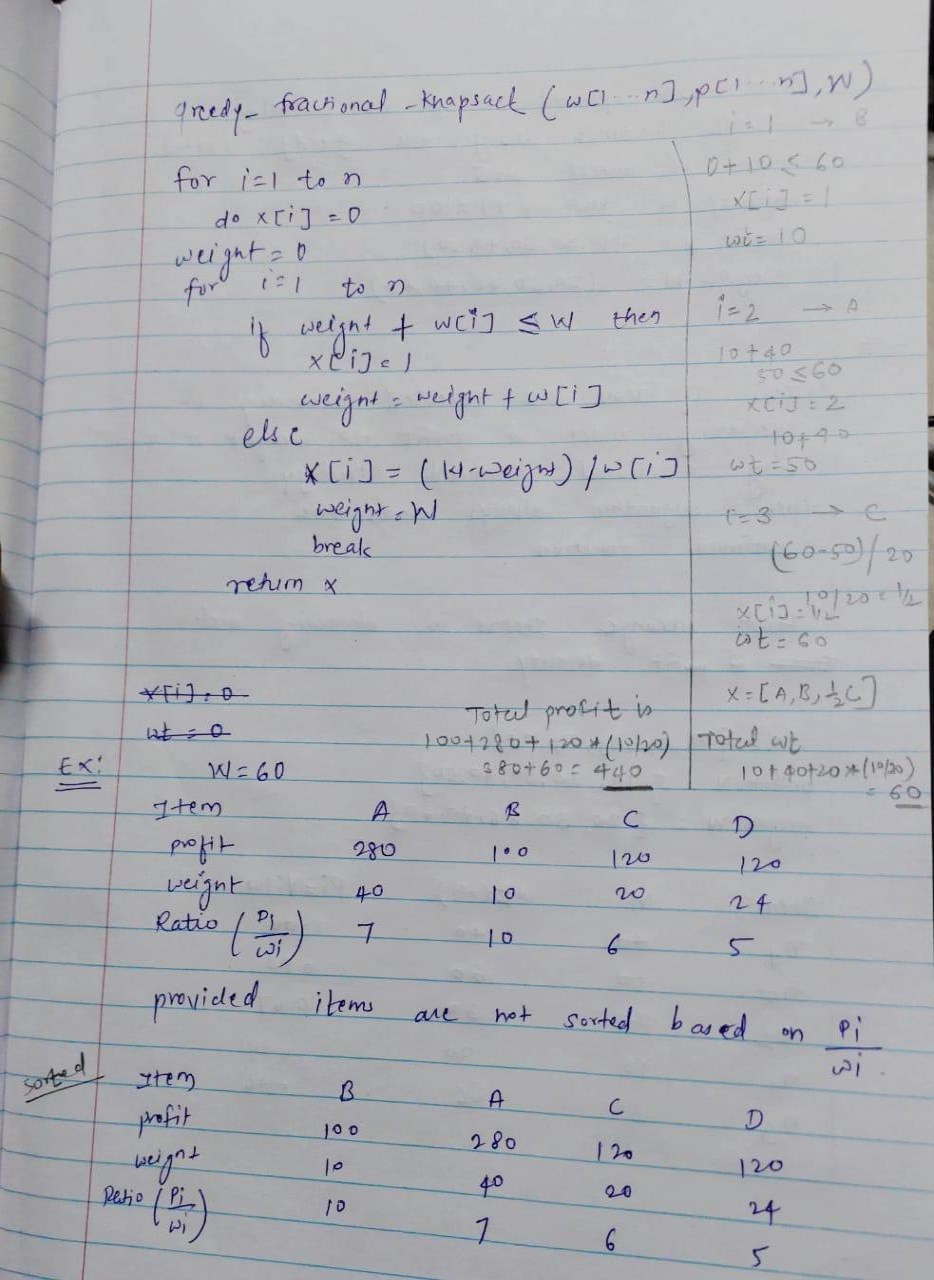 greedy_ fractional -knapsack (w[1...n],p[1...n],W)
for i=1 to n
do x[i] = 0
weight = 0
for i=1 to n
if weight + w[i] ≤ W then
x[i]=1
weight = weight + w[i]
else
x[i] = (W-weight)/w[i]
weight = W
break
return x
i=1 → B
0+10 ≤ 60
x[i] = 1
wt = 10
i=2 → A
10+40
50 ≤ 60
x[i] = 2
10+40
wt = 50
i=3 → C
(60-50)/20
10/20 = 1/2
x[i] = 1/2
wt = 60
x = [A, B, 1/2 C]
Total wt
10+40+20*(10/20)
= 60
x[i] = 0
wt = 0
Total profit is
100+280+120*(10/20)
380+60 = 440
Ex: W = 60
Item A B C D
profit 280 100 120 120
weight 40 10 20 24
Ratio (Pi/wi) 7 10 6 5
provided items are not sorted based on Pi/wi .
sorted Item B A C D
profit 100 280 120 120
weight 10 40 20 24
Ratio (Pi/wi) 10 7 6 5